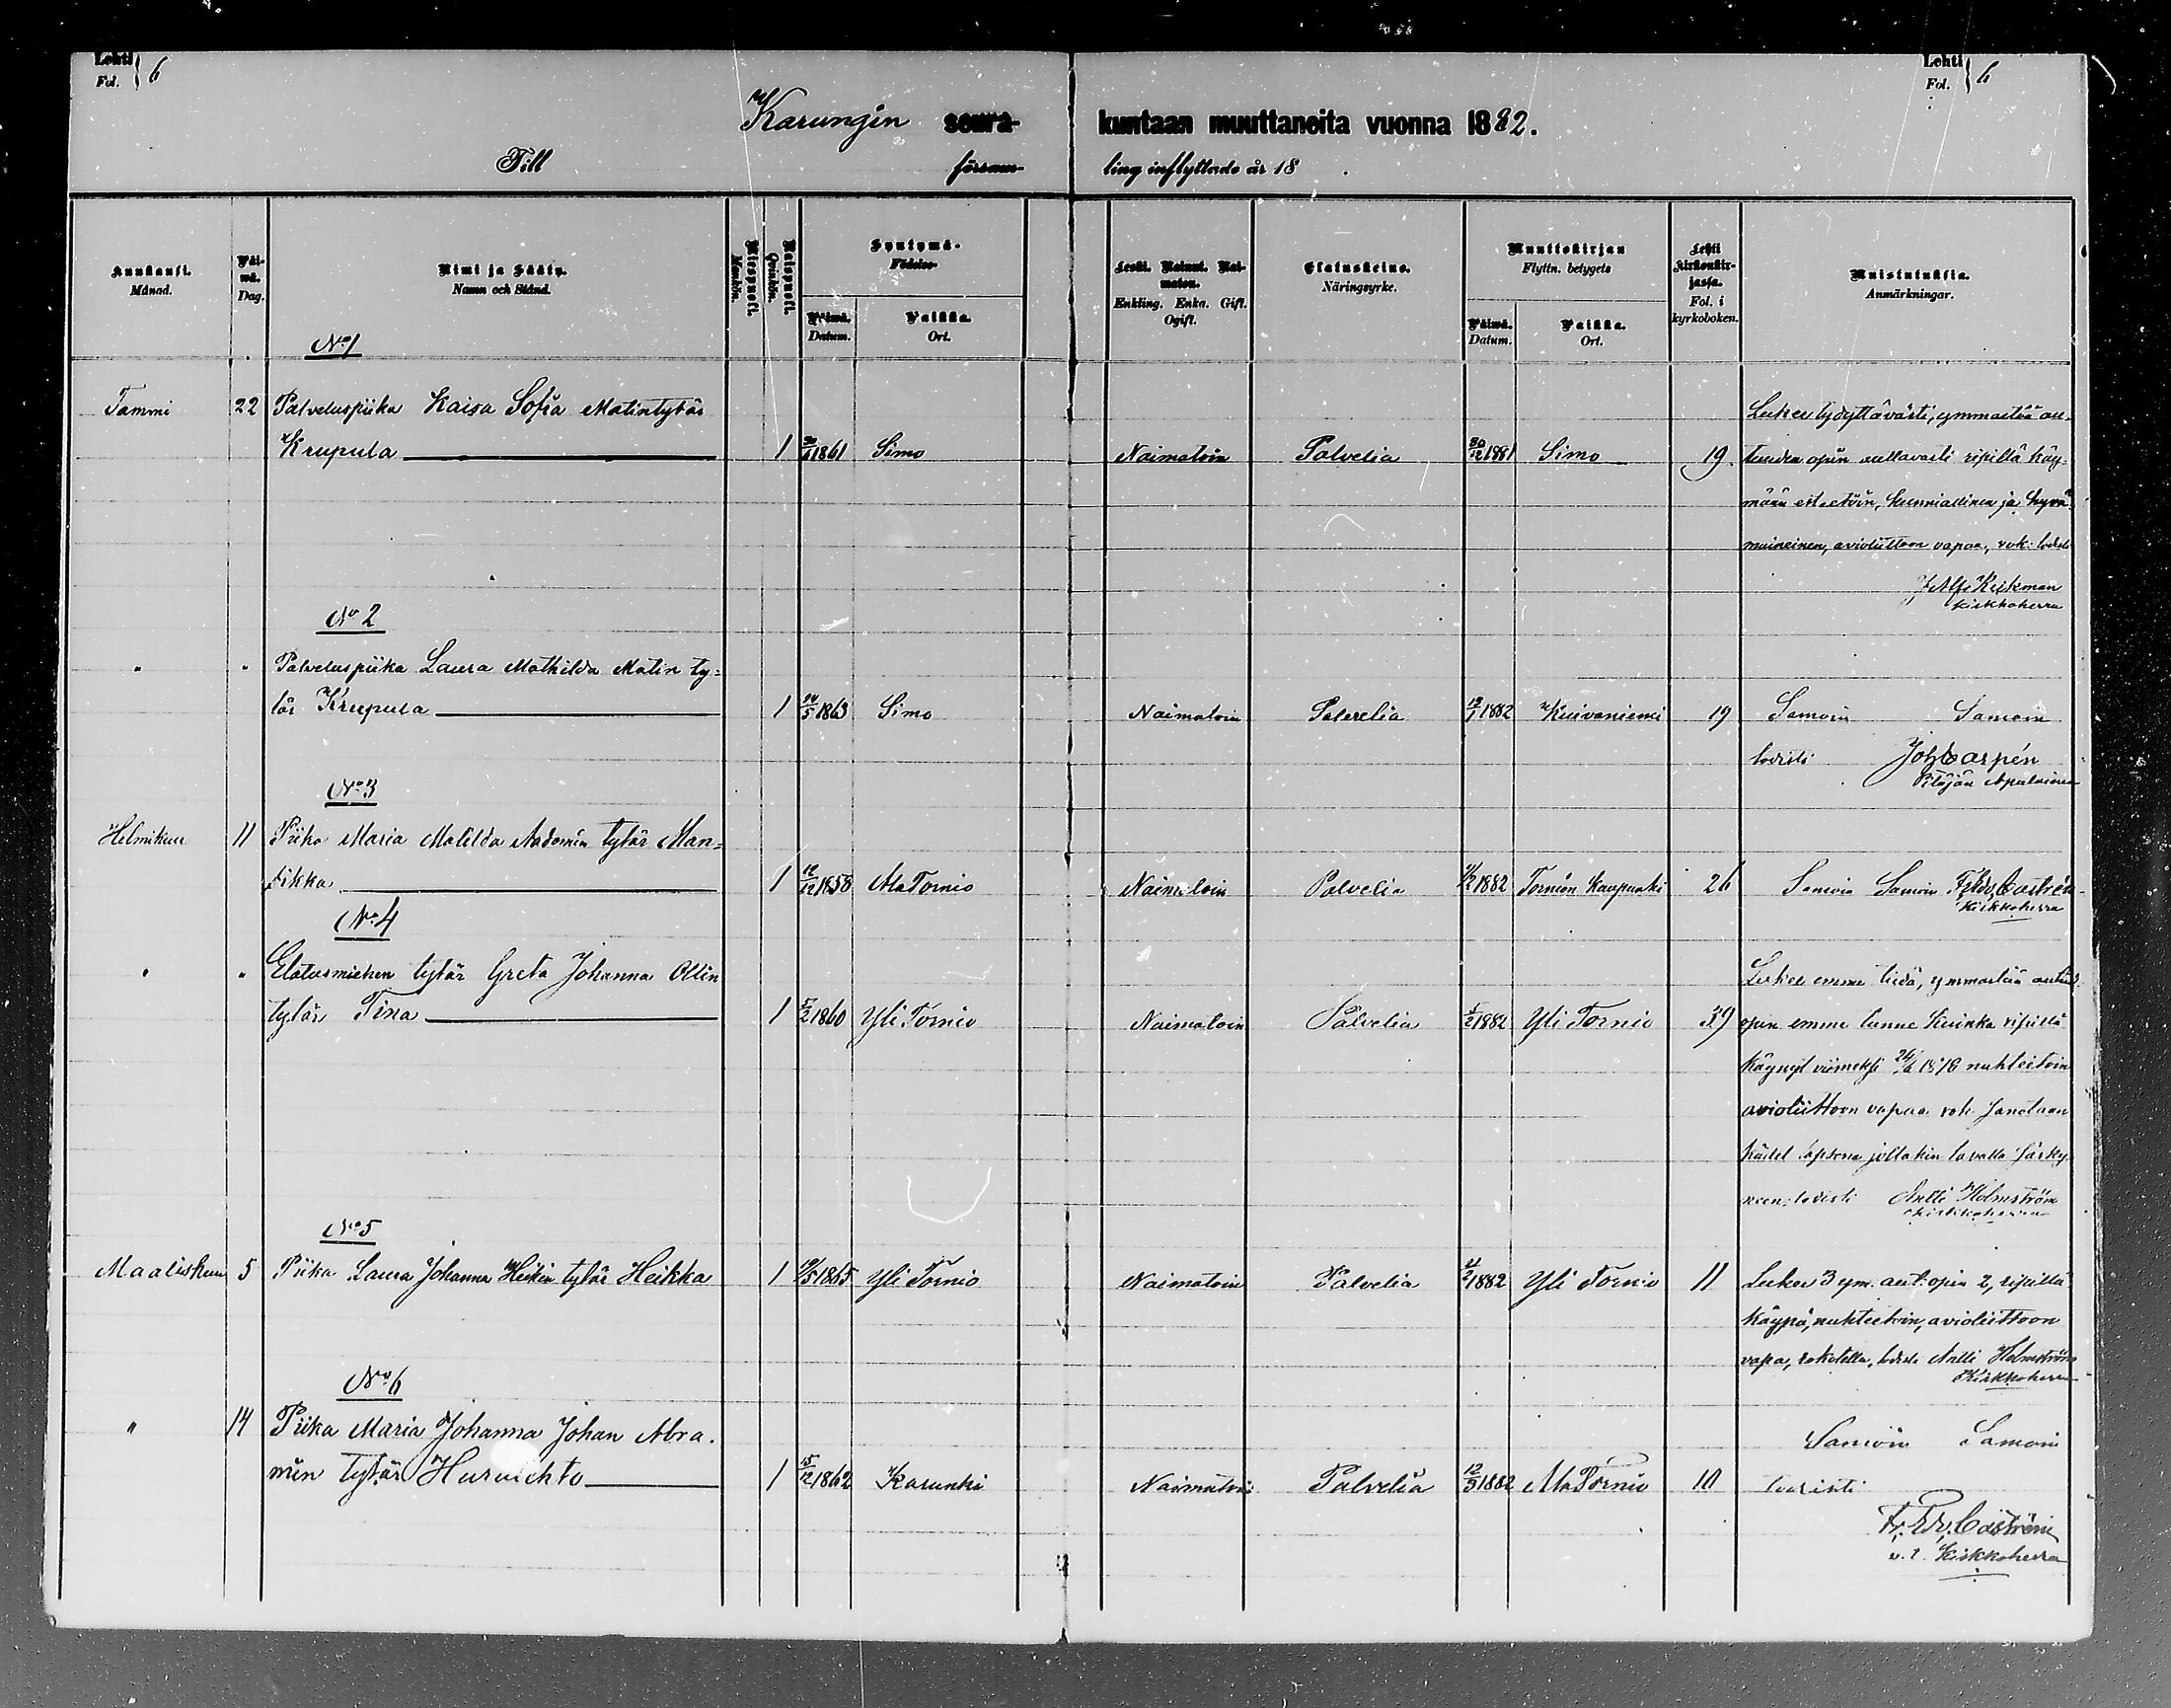 Lehti Fol. } 6
Lehti Fol. } 6
Karungin seura-kuntaan muuttaneita vuonna 1882.
Till försam-ling inflyttade år 18 .
Kuukausi. Månad.
Päivä. Dag.
Nimi ja Sääty. Namn och Stånd.
Miespuoli. Mankön.
Naispuoli. Qvinkön.
Syntymä- Födelse-
Päivä. Datum.
Paikka. Ort.
Leski. Nainut. Naimaton. Enkling. Enka. Gift. Ogift.
Elatuskeino. Näringsyrke.
Muuttokirjan Flyttn. betygets
Päivä. Datum.
Paikka. Ort.
Lehti kirkonkirjassa. Fol. i kyrkoboken.
Muistutuksia. Anmärkningar.
No 1
Tammi 22 Palveluspiika Kaisa Sofia Matintytär Lukee tydyttävästi, ymmärtää au-
Krupula 1 1861 Simo Naimatoin Palvelia 30/12 1881 Simo 19. tuuden opin auttavasti ripillä käy-
mään esteetöin, kunniallinen ja hyvä
maineinen, avioliittoon vapaa, rok. todisti
kirkkoherra
No 2
" " Palveluspiika Laura Mathilda Matin ty-
tär Krupula 1 24/5 1863 Simo Naimatoin Palvelia 1882 Kuivaniemi 19 Samoin Samoin
todisti Joh Carpén
Pitäjän Apulainen
No 3
Helmikuu 11 Piika Maria Matilda Aadamin tytär Man-
sikka 1 12/12 1858 AlaTornio Naimatoin Palvelia 1882 Tornion Kaupunki 26 Samoin Samoin Castrén
Kirkkoherra
No 4
" " Elatusmiehen tytär Greta Johanna Ollin Lukee emme tiedä, ymmärtää autud.
tytär Tina 1 5/2 1860 Yli Tornio Naimatoin Palvelia 1/2 1882 Yli Tornio 39 opin emme tunne kuinka ripillä
käynyt viimeksi nuhteetoin
avioliittoon vapaa rok. sanotaan
lapsena jollakin tavalla
neen; todisti Antti Holmström
kirkkoherra
No 5
Maaliskuu 5 Piika Laura Johanna Heikin tytär Heikka 1 1865 Yli Tornio Naimatoin Palvelia 1882 Yli Tornio 11 Lukee 3 ym. aut. opin 2, ripillä
käypä, nuhteetoin, avioliittoon
vapa, rokotettu, todisti Antti Holmström
Kirkkoherra
No 6
" 14 Piika Maria Johanna Johan Abra- Samoin Samoin
min tytär 1 15/12 1862 Karunki Naimatoin Palvelia 12/3 1882 AlaTornio 10 todisti
Fr. Edv. Castrén
v. t. Kirkkoherra